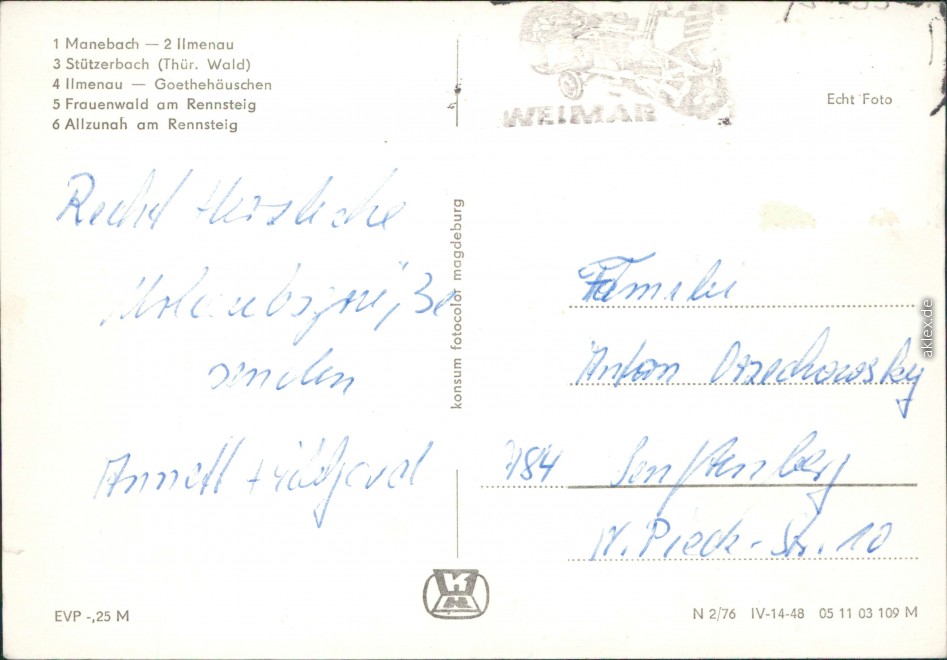 1 Manebach — 2 Ilmenau
3 Stützerbach (Thür. Wald)
4 Ilmenau — Goethehäuschen
5 Frauenwald am Rennsteig
6 Allzunah am Rennsteig
WEIMAR
Echt Foto
Recht Herzliche
Urlaubsgrüße
senden
Annett +
konsum fotocolor magdeburg
Familie
Anton Orzechowsky
784 Senftenberg
W. Pieck-Str. 10
EVP -,25 M
N 2/76 IV-14-48 05 11 03 109 M
aklex.de